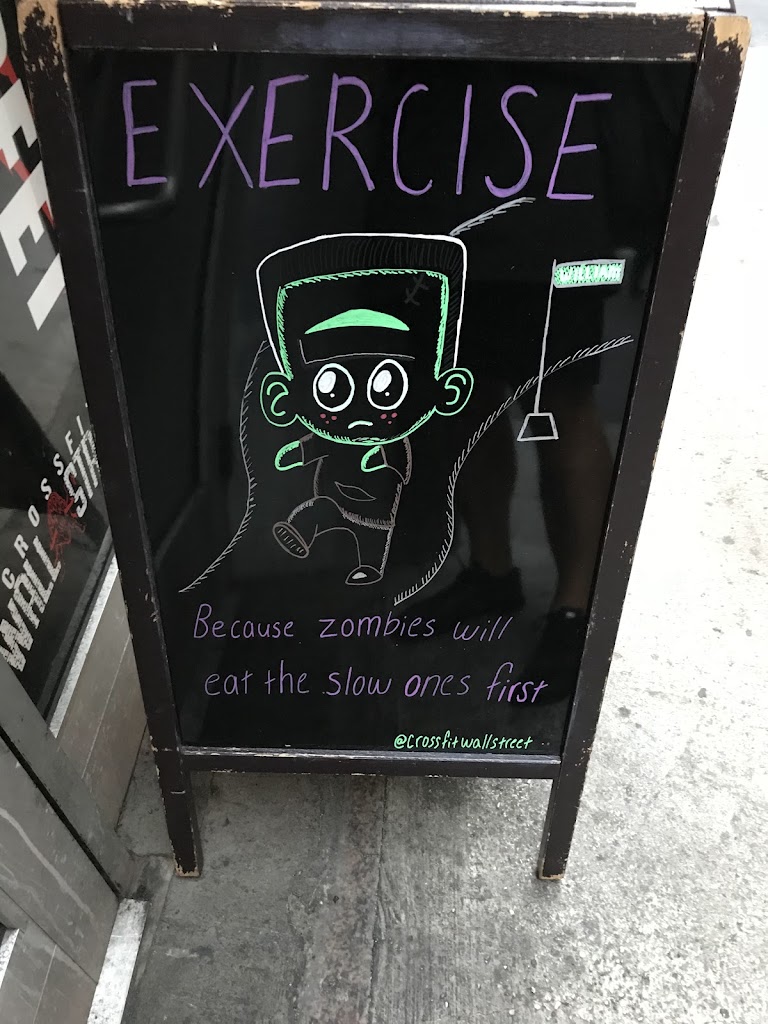 EXERCISE
WILLIAM
Because zombies will
eat the slow ones first
@crossfitwallstreet
CROSSFI
WALL STR